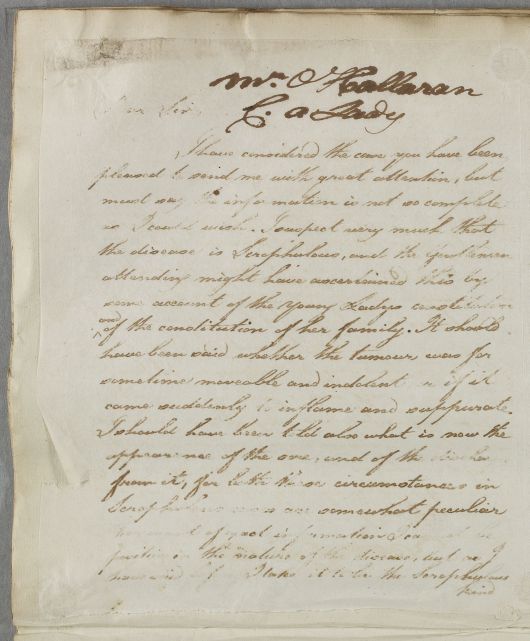 Mr. O'Hallaran
C. a Lady
Dear Sir
I have considered the case you have been
pleased to send me with great attention, but
must say the information is not so complete
as I could wish. I suspect very much that
the disease is Scrophulous, and the Gentlemen
attending might have ascertained this by
some account of the Young Ladys constitution
and
of the constitution of her family. It should
have been said whether the tumour was for
sometime moveable and indolent or if it
came suddenly to inflame and suppurate.
I should have been told also what is now the
appearance of the sore, and of the
from it, for both these circumstances in
Scrophulous sores are somewhat peculiar
want of exact information I cannot be
positive in the nature of the disease, but as I
I take it to be the Scrophulous
kind